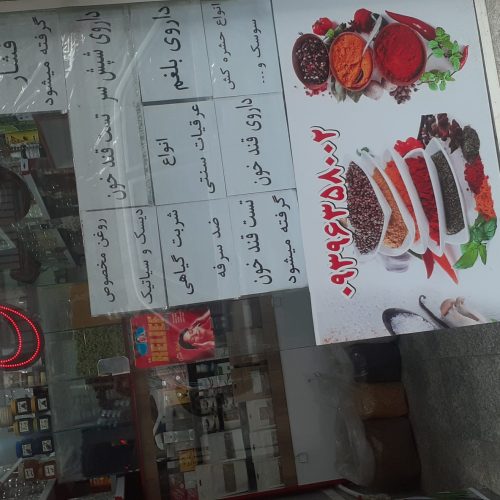 فشار
گرفته میشود
داروی شپش سر
تست قند خون
روغن مخصوص
دیسک و سیاتیک
داروی بلغم
انواع
عرقیات سنتی
شربت گیاهی
ضد سرفه
انواع حشره کش
سوسک و ...
داروی قند خون
تست قند خون
گرفته میشود
۰۹۳۹۶۳۵۸۰۰۲
RELIEF